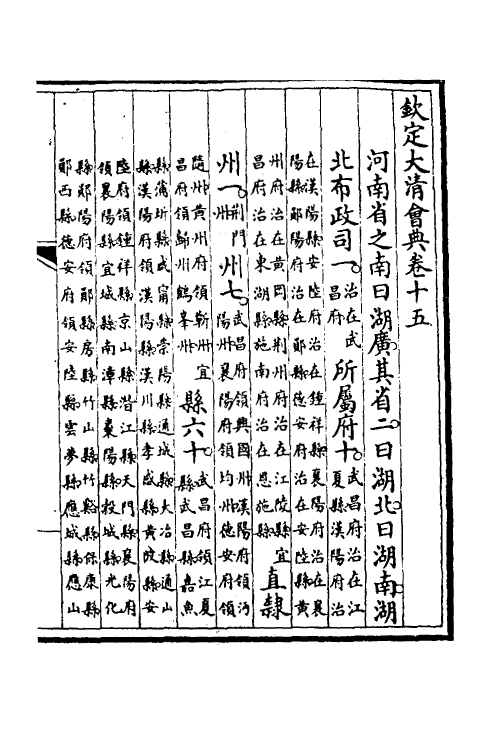 欽定大清會典卷十五
河南省之南曰湖廣其省二曰湖北曰湖南湖
北布政司一治在武昌府所屬府十武昌府治在江夏縣漢陽府治
在漢陽縣安陸府治在鍾祥縣襄陽府治在襄
陽縣鄖陽府治在鄖縣德安府治在安陸縣黃
州府治在黃岡縣荊州府治在江陵縣宜昌府治在東湖縣施南府治在恩施縣直隸
州一荊門州州七武昌府領興國州漢陽府領沔陽州襄陽府領均州德安府領
隨州黃州府領蘄州宜昌府領歸州鶴峯州縣六十武昌府領江夏縣武昌縣嘉魚
縣蒲圻縣咸甯縣崇陽縣通城縣大冶縣通山
縣漢陽府領漢陽縣漢川縣孝感縣黃陂縣安
陸府領鍾祥縣京山縣潛江縣天門縣襄陽府
領襄陽縣宜城縣南漳縣棗陽縣穀城縣光化
縣鄖陽府領鄖縣房縣竹山縣竹谿縣保康縣
鄖西縣德安府領安陸縣雲夢縣應城縣應山